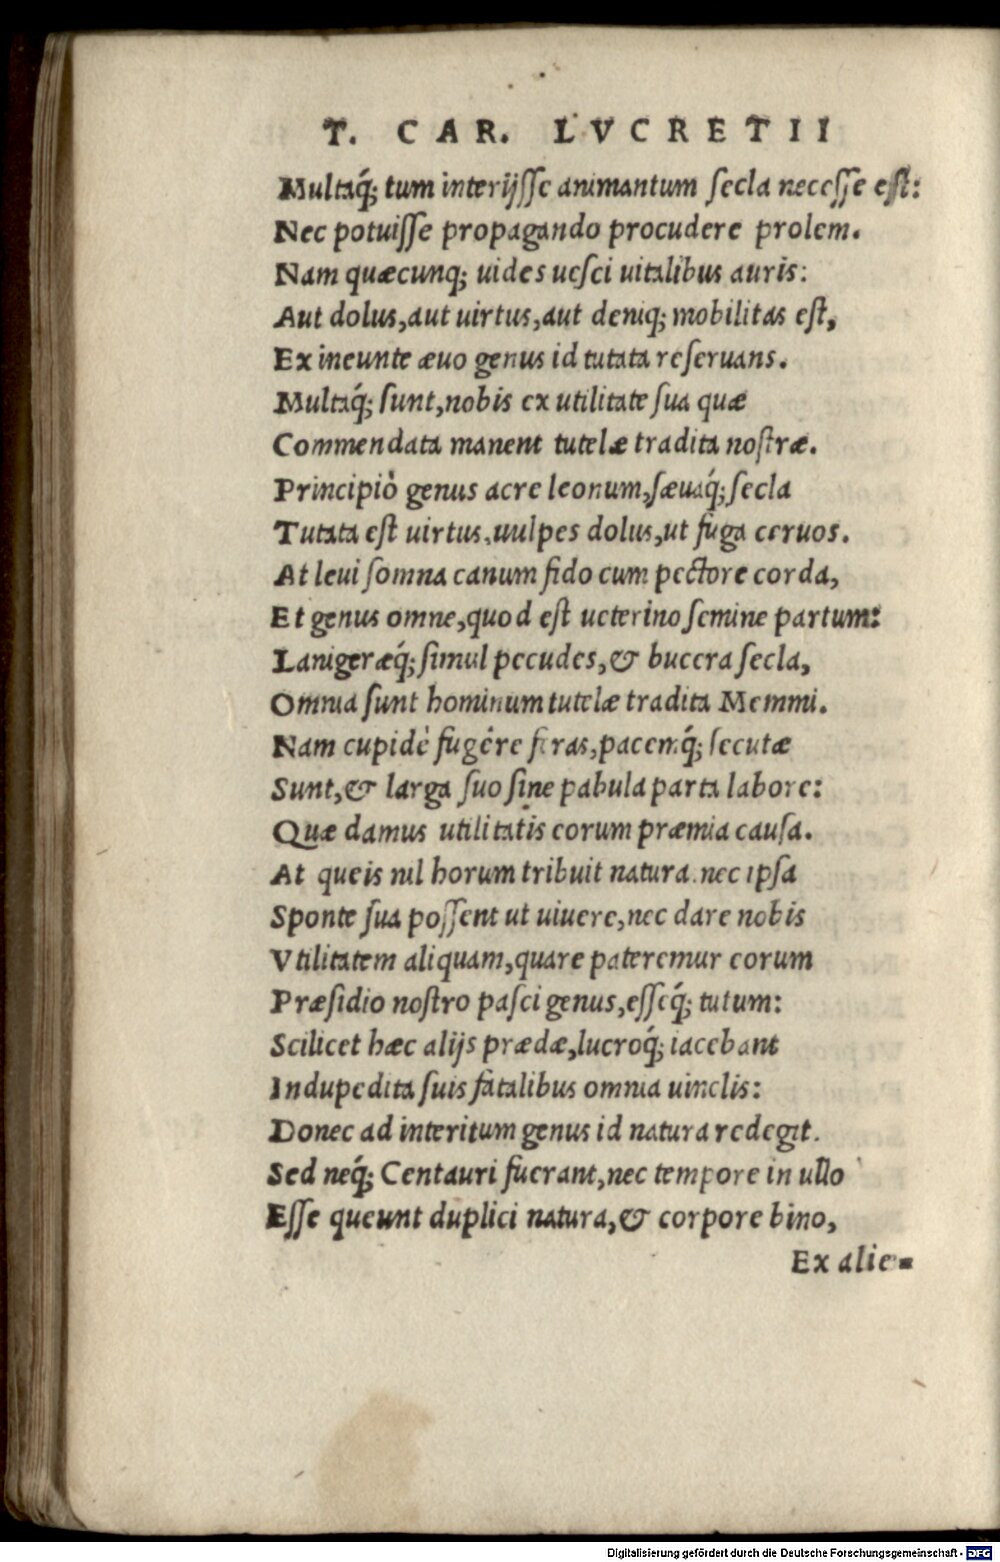 T. CAR. LVCRETII
Multaq́; tum interijſſe animantum ſecla neceſſe eſt:
Nec potuiſſe propagando procudere prolem.
Nam quæcunq; uides ueſci uitalibus auris:
Aut dolus, aut uirtus, aut deniq; mobilitas eſt,
Ex ineunte æuo genus id tutata reſeruans.
Multaq́; ſunt, nobis ex utilitate ſua quæ
Commendata manent tutelæ tradita noſtræ.
Principiò genus acre leonum, ſæuaq́; ſecla
Tutata eſt uirtus, uulpes dolus, ut fuga ceruos.
At leui ſomna canum fido cum pectore corda,
Et genus omne, quod eſt ueterino ſemine partum:
Lanigeræq́; ſimul pecudes, & bucera ſecla,
Omnia ſunt hominum tutelæ tradita Memmi.
Nam cupidè fugêre feras, pacemq́; ſecutæ
Sunt, & larga ſuo ſine pabula parta labore:
Quæ damus utilitatis eorum præmia cauſa.
At queis nil horum tribuit natura. nec ipſa
Sponte ſua poſſent ut uiuere, nec dare nobis
Vtilitatem aliquam, quare pateremur eorum
Præſidio noſtro paſci genus, eſſeq́; tutum:
Scilicet hæc alijs prædæ, lucroq́; iacebant
Indupedita ſuis fatalibus omnia uinclis:
Donec ad interitum genus id natura redegit.
Sed neq́; Centauri fuerant, nec tempore in ullo
Eſſe queunt duplici natura, & corpore bino,
Ex alie-
Digitalisierung gefördert durch die Deutsche Forschungsgemeinschaft - DFG